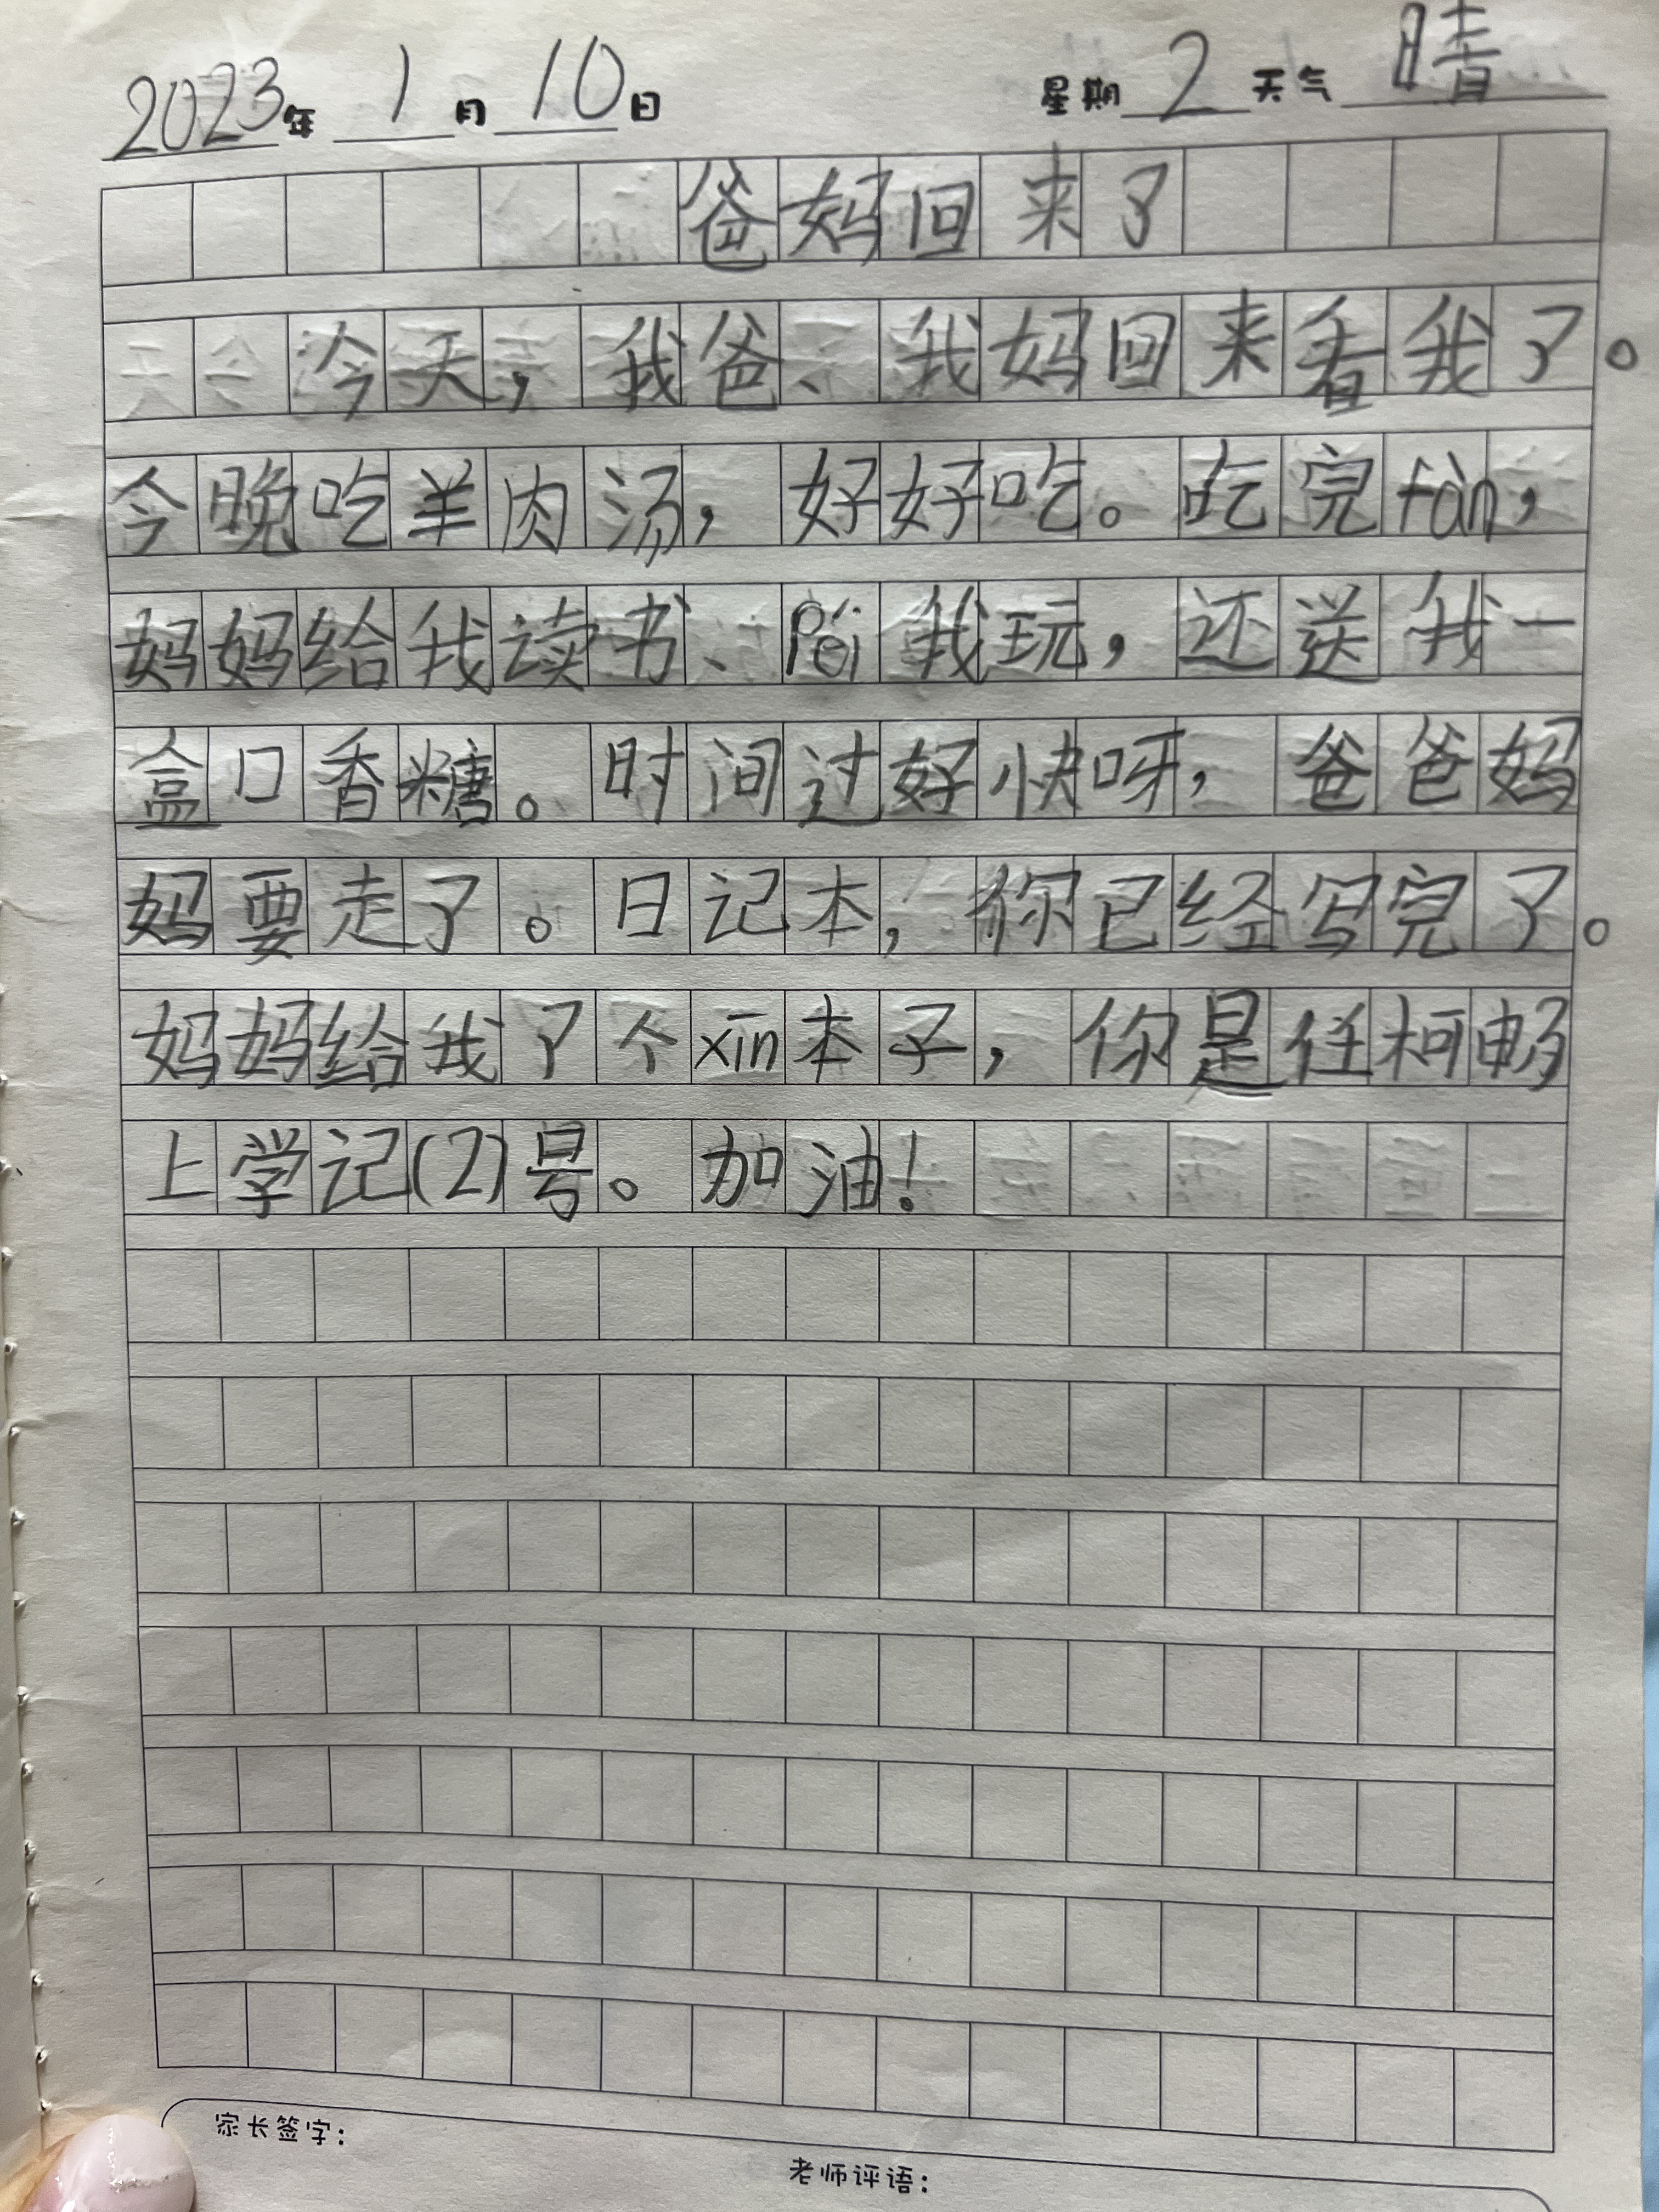 2023年1月10日 星期2天气晴
爸妈回来了
今天，我爸、我妈回来看我了。
今晚吃羊肉汤，好好吃。吃完fàn，
妈妈给我读书、Péi我玩，还送我一
盒口香糖。时间过好快呀，爸爸妈
妈要走了。日记本，你已经写完了。
妈妈给我了个xīn本子，你是任柯畅
上学记(2)号。加油！
家长签字：
老师评语：